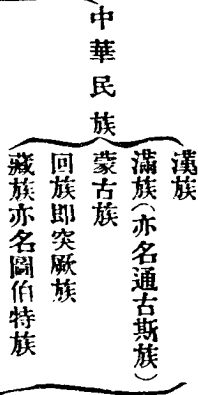 中華民族
漢族
滿族(亦名通古斯族)
蒙古族
回族即突厥族
藏族亦名圖伯特族